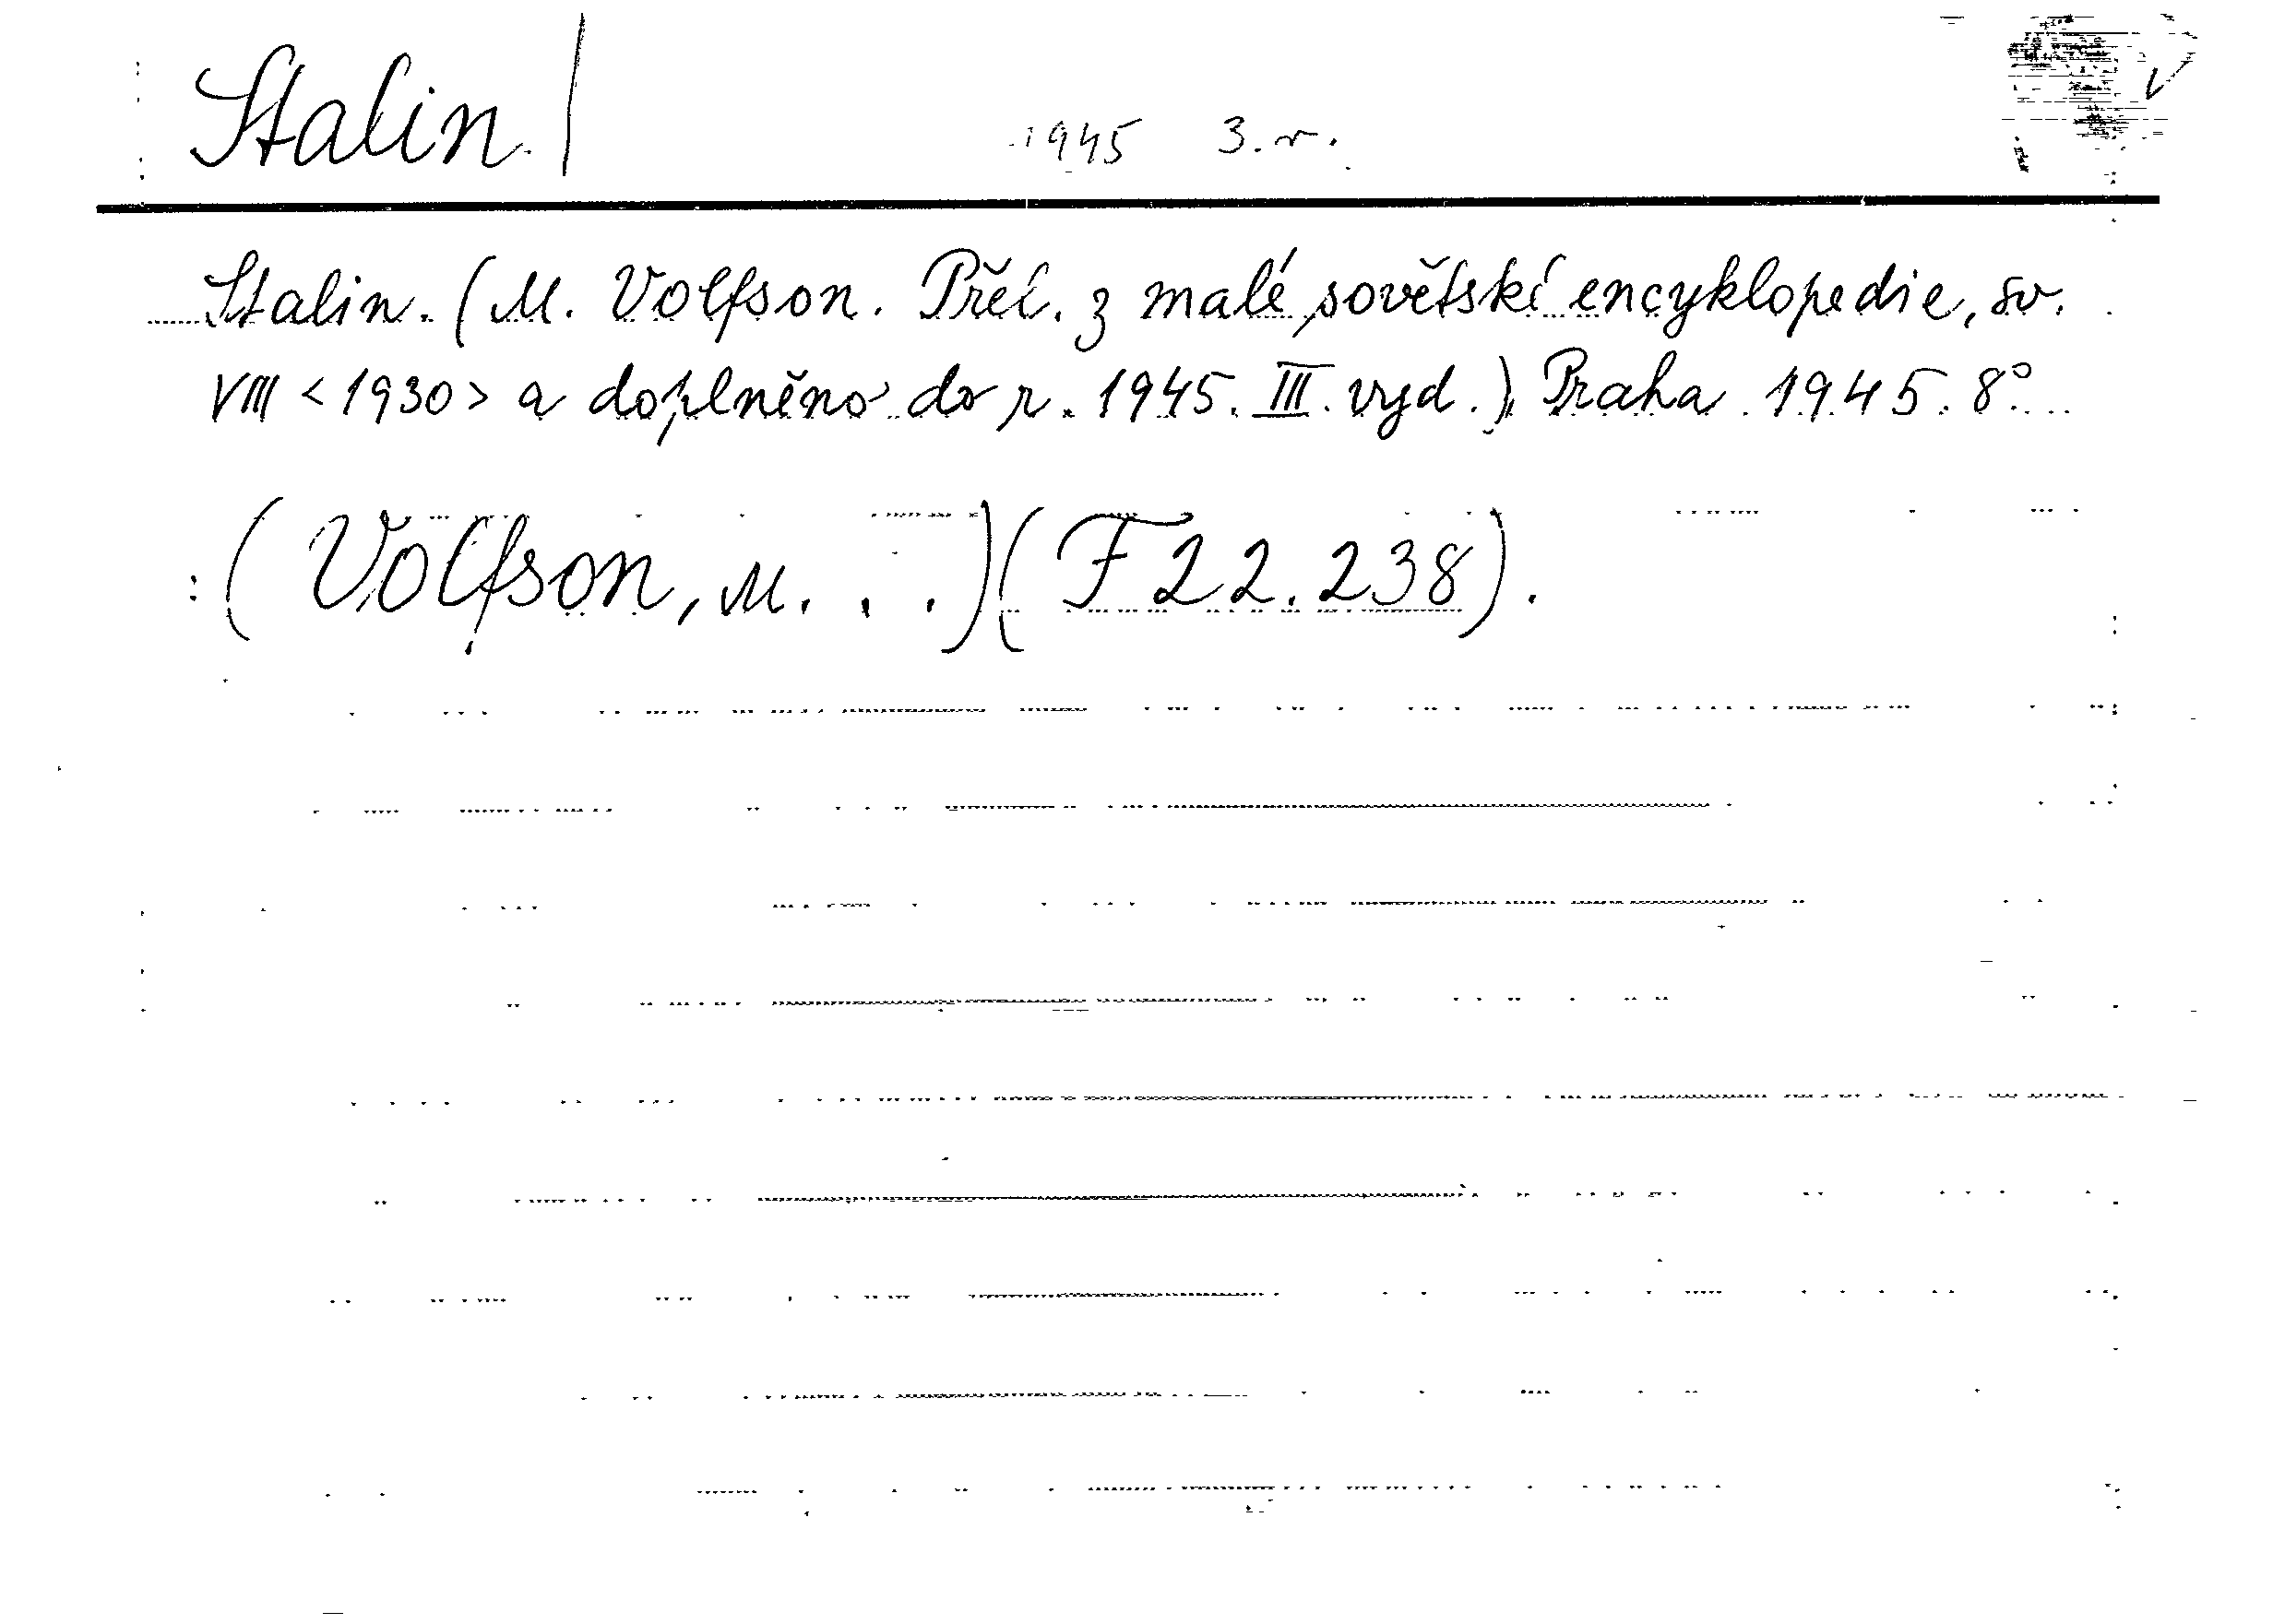 Stalin. | 1945 3. v.
Stalin. (M. Volfson. Přel. z malé sovětské encyklopedie, sv.
VIII <1930> a doplněno do r. 1945. III. vyd.) Praha 1945. 8°
(Volfson, M. . .) (F 22.238).